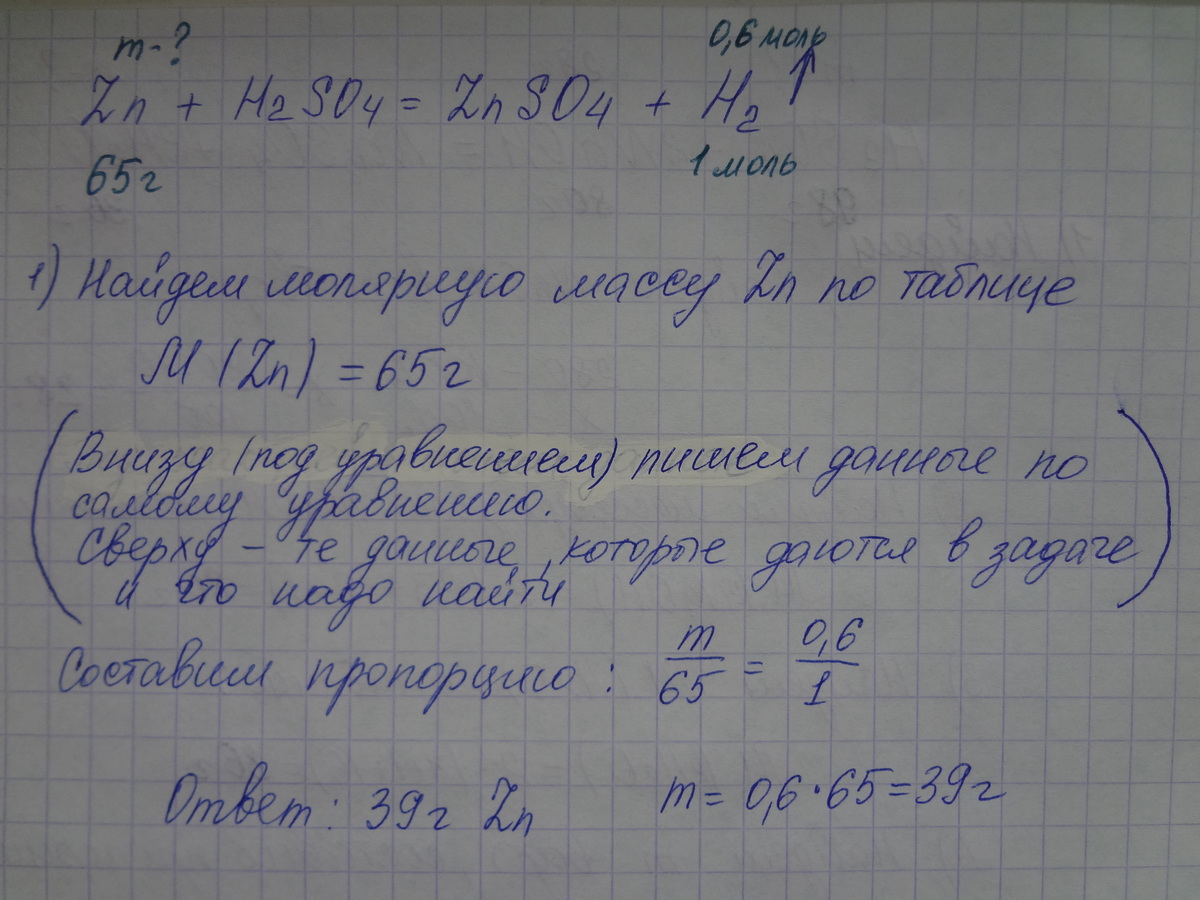 m-? 0,6 моль
Zn + H₂SO₄ = ZnSO₄ + H₂↑
65г 1 моль
1) Найдем молярную массу Zn по таблице
M (Zn) = 65г
(Внизу (под уравнением) пишем данные по
самому уравнению.
Сверху – те данные, которые даются в задаче
и что надо найти)
Составим пропорцию: m/65 = 0,6/1
Ответ: 39г Zn m = 0,6·65=39г